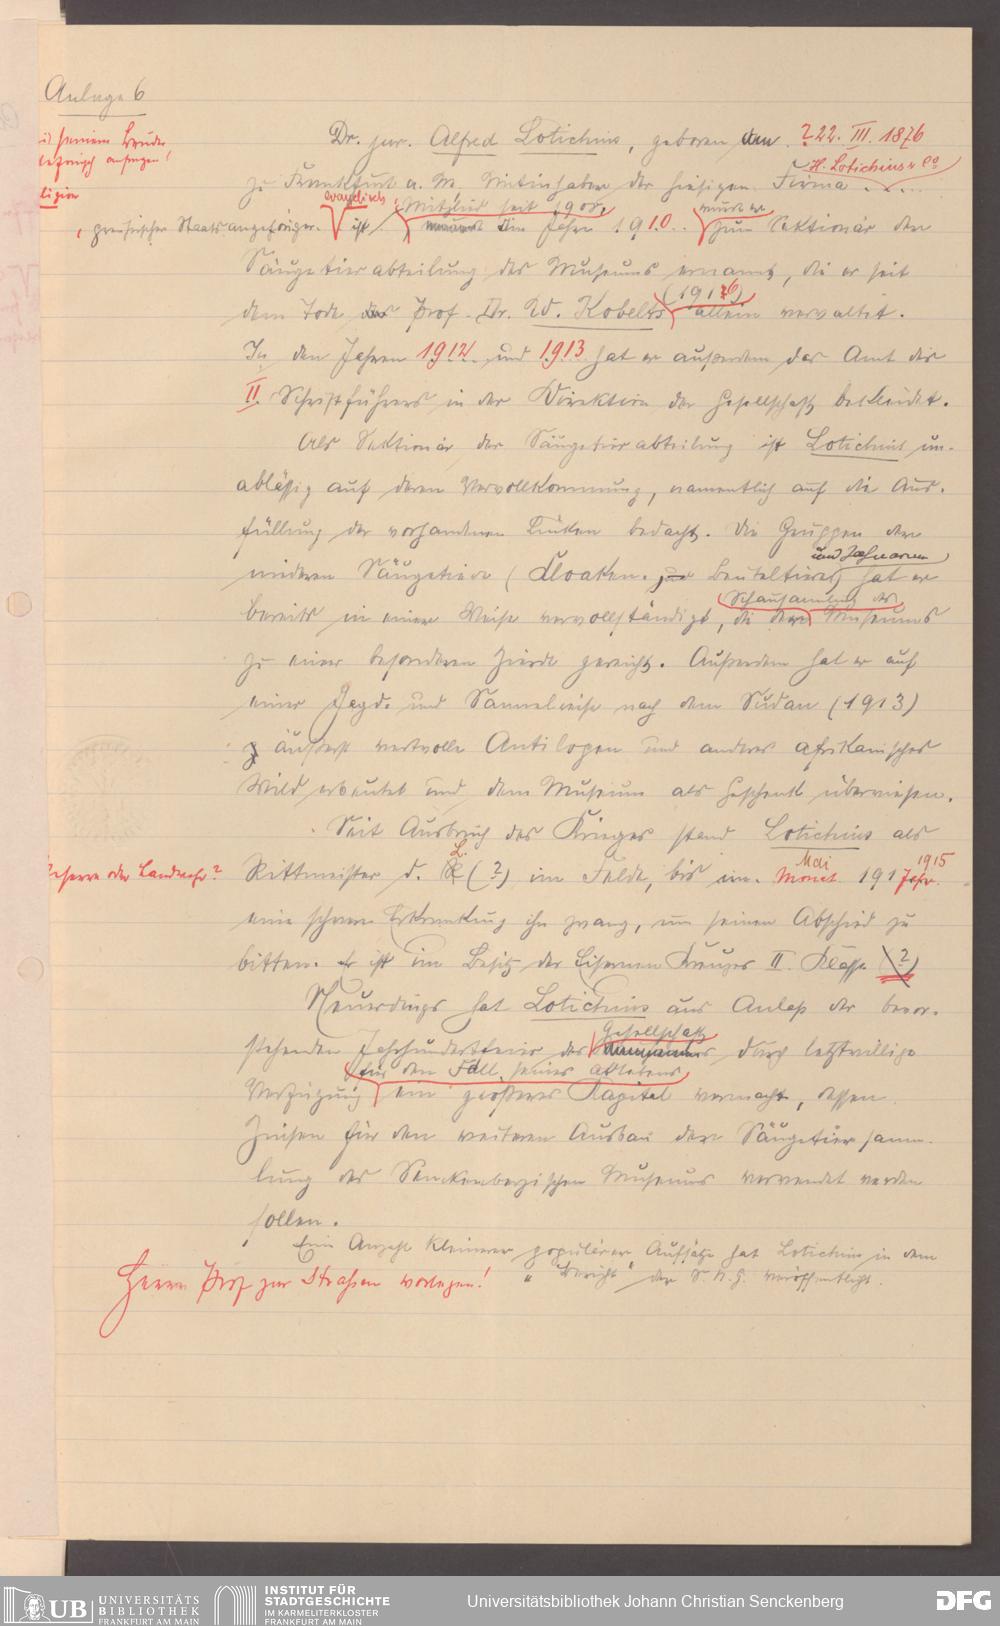 Anlage 6
seinem Bruder
telefonisch anfragen!
Religion
Dr. jur. Alfred Lotichius, geboren den ? 22. III. 1876
H. Lotichius & Co
zu Frankfurt a. M. Mitinhaber der hiesigen Firma . . . .
evangelisch Mitglied seit 1908, wurde er
, preußischer Staatsangehöriger. ist im Jahre 1910 . . zum Sektionär der
Säugetierabteilung des Museums ernannt, die er seit
(1916)
dem Tode des Prof. Dr. W. Kobelt allein verwaltet.
In den Jahren 1912 und 1913 hat er außerdem das Amt des
II. Schriftführers in der Direktion der Gesellschaft bekleidet.
Als Sektionär der Säugetierabteilung ist Lotichius un-
abläßig auf deren Vervollkommnung, namentlich auf die Aus-
füllung der vorhandenen Lücken bedacht. Die Gruppen der
und Zahnarmen
niederen Säugetiere (Kloaken-, Beuteltiere) hat er
Schausammlung des
bereits in einer Weise vervollständigt, die dem Museums
zu einer besonderen Zierde gereicht. Außerdem hat er auf
einer Jagd- und Sammelreise nach dem Sudan (1913)
äußerst wertvolle Antilopen und anderes afrikanisches
Wild erbeutet und dem Museum als Geschenk überwiesen.
Seit Ausbruch des Krieges stand Lotichius als
Reserve oder Landwehr? Rittmeister d. L. (?) im Felde, bis im Mai Monat 191 Jahr 1915
eine schwere Erkrankung ihn zwang, um seinen Abschied zu
bitten. Er ist im Besitz des Eisernen Kreuzes II. Klasse (?)
Neuerdings hat Lotichius aus Anlaß der bevor-
Gesellschaft
stehenden Jahrhundertfeier der durch letztwillige
für den Fall seines Ablebens
Verfügung ein größeres Kapital vermacht, dessen
Zinsen für den weiteren Ausbau der Säugetiersamm-
lung des Senckenbergischen Museums verwendet werden
sollen.
Eine Anzahl kleinerer populärer Aufsätze hat Lotichius in dem
"Bericht" der S. N. G. veröffentlicht.
Herrn Prof zur Strassen vorlegen!
UB UNIVERSITÄTS
BIBLIOTHEK
FRANKFURT AM MAIN
INSTITUT FÜR
STADTGESCHICHTE
IM KARMELITERKLOSTER
FRANKFURT AM MAIN
Universitätsbibliothek Johann Christian Senckenberg
DFG